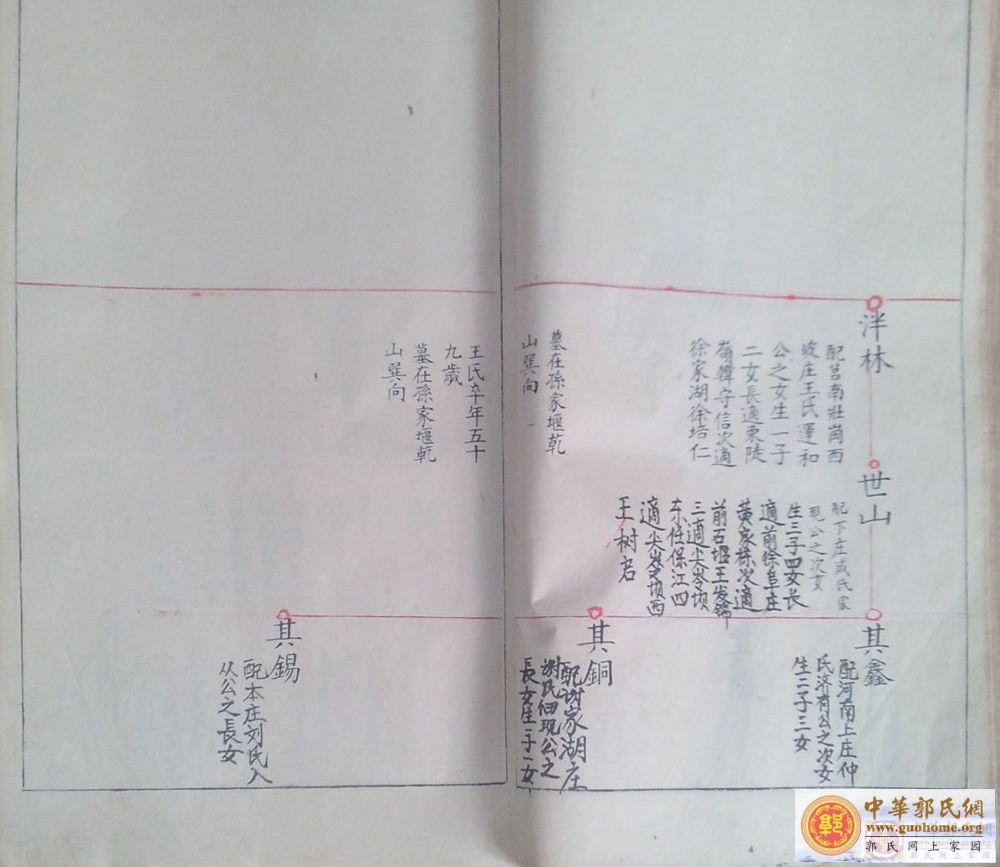 泮林
配莒南壮崗西
坡庄王氏運和
公之女生一子
二女長適東陡
嶺韓守信次適
徐家湖徐培仁
墓在孫家堰乾
山巽向
王氏卒年五十
九歲
墓在孫家堰乾
山巽向
世山
配下庄成氏家
現公之次女
生三子四女长
適前徐阜庄
黄家栋次適
前石堰王发錦
三適尖岑坝
东任保江四
適尖岑坝西
王树启
其鑫
配河南上庄仲
氏济有公之次女
生二子三女
其銅
配谢家湖庄
谢氏佃现公之
長女生一子一女
其錫
配本庄刘氏入
从公之長女
中華郭氏網
www.guohome.org
郭氏网上家园